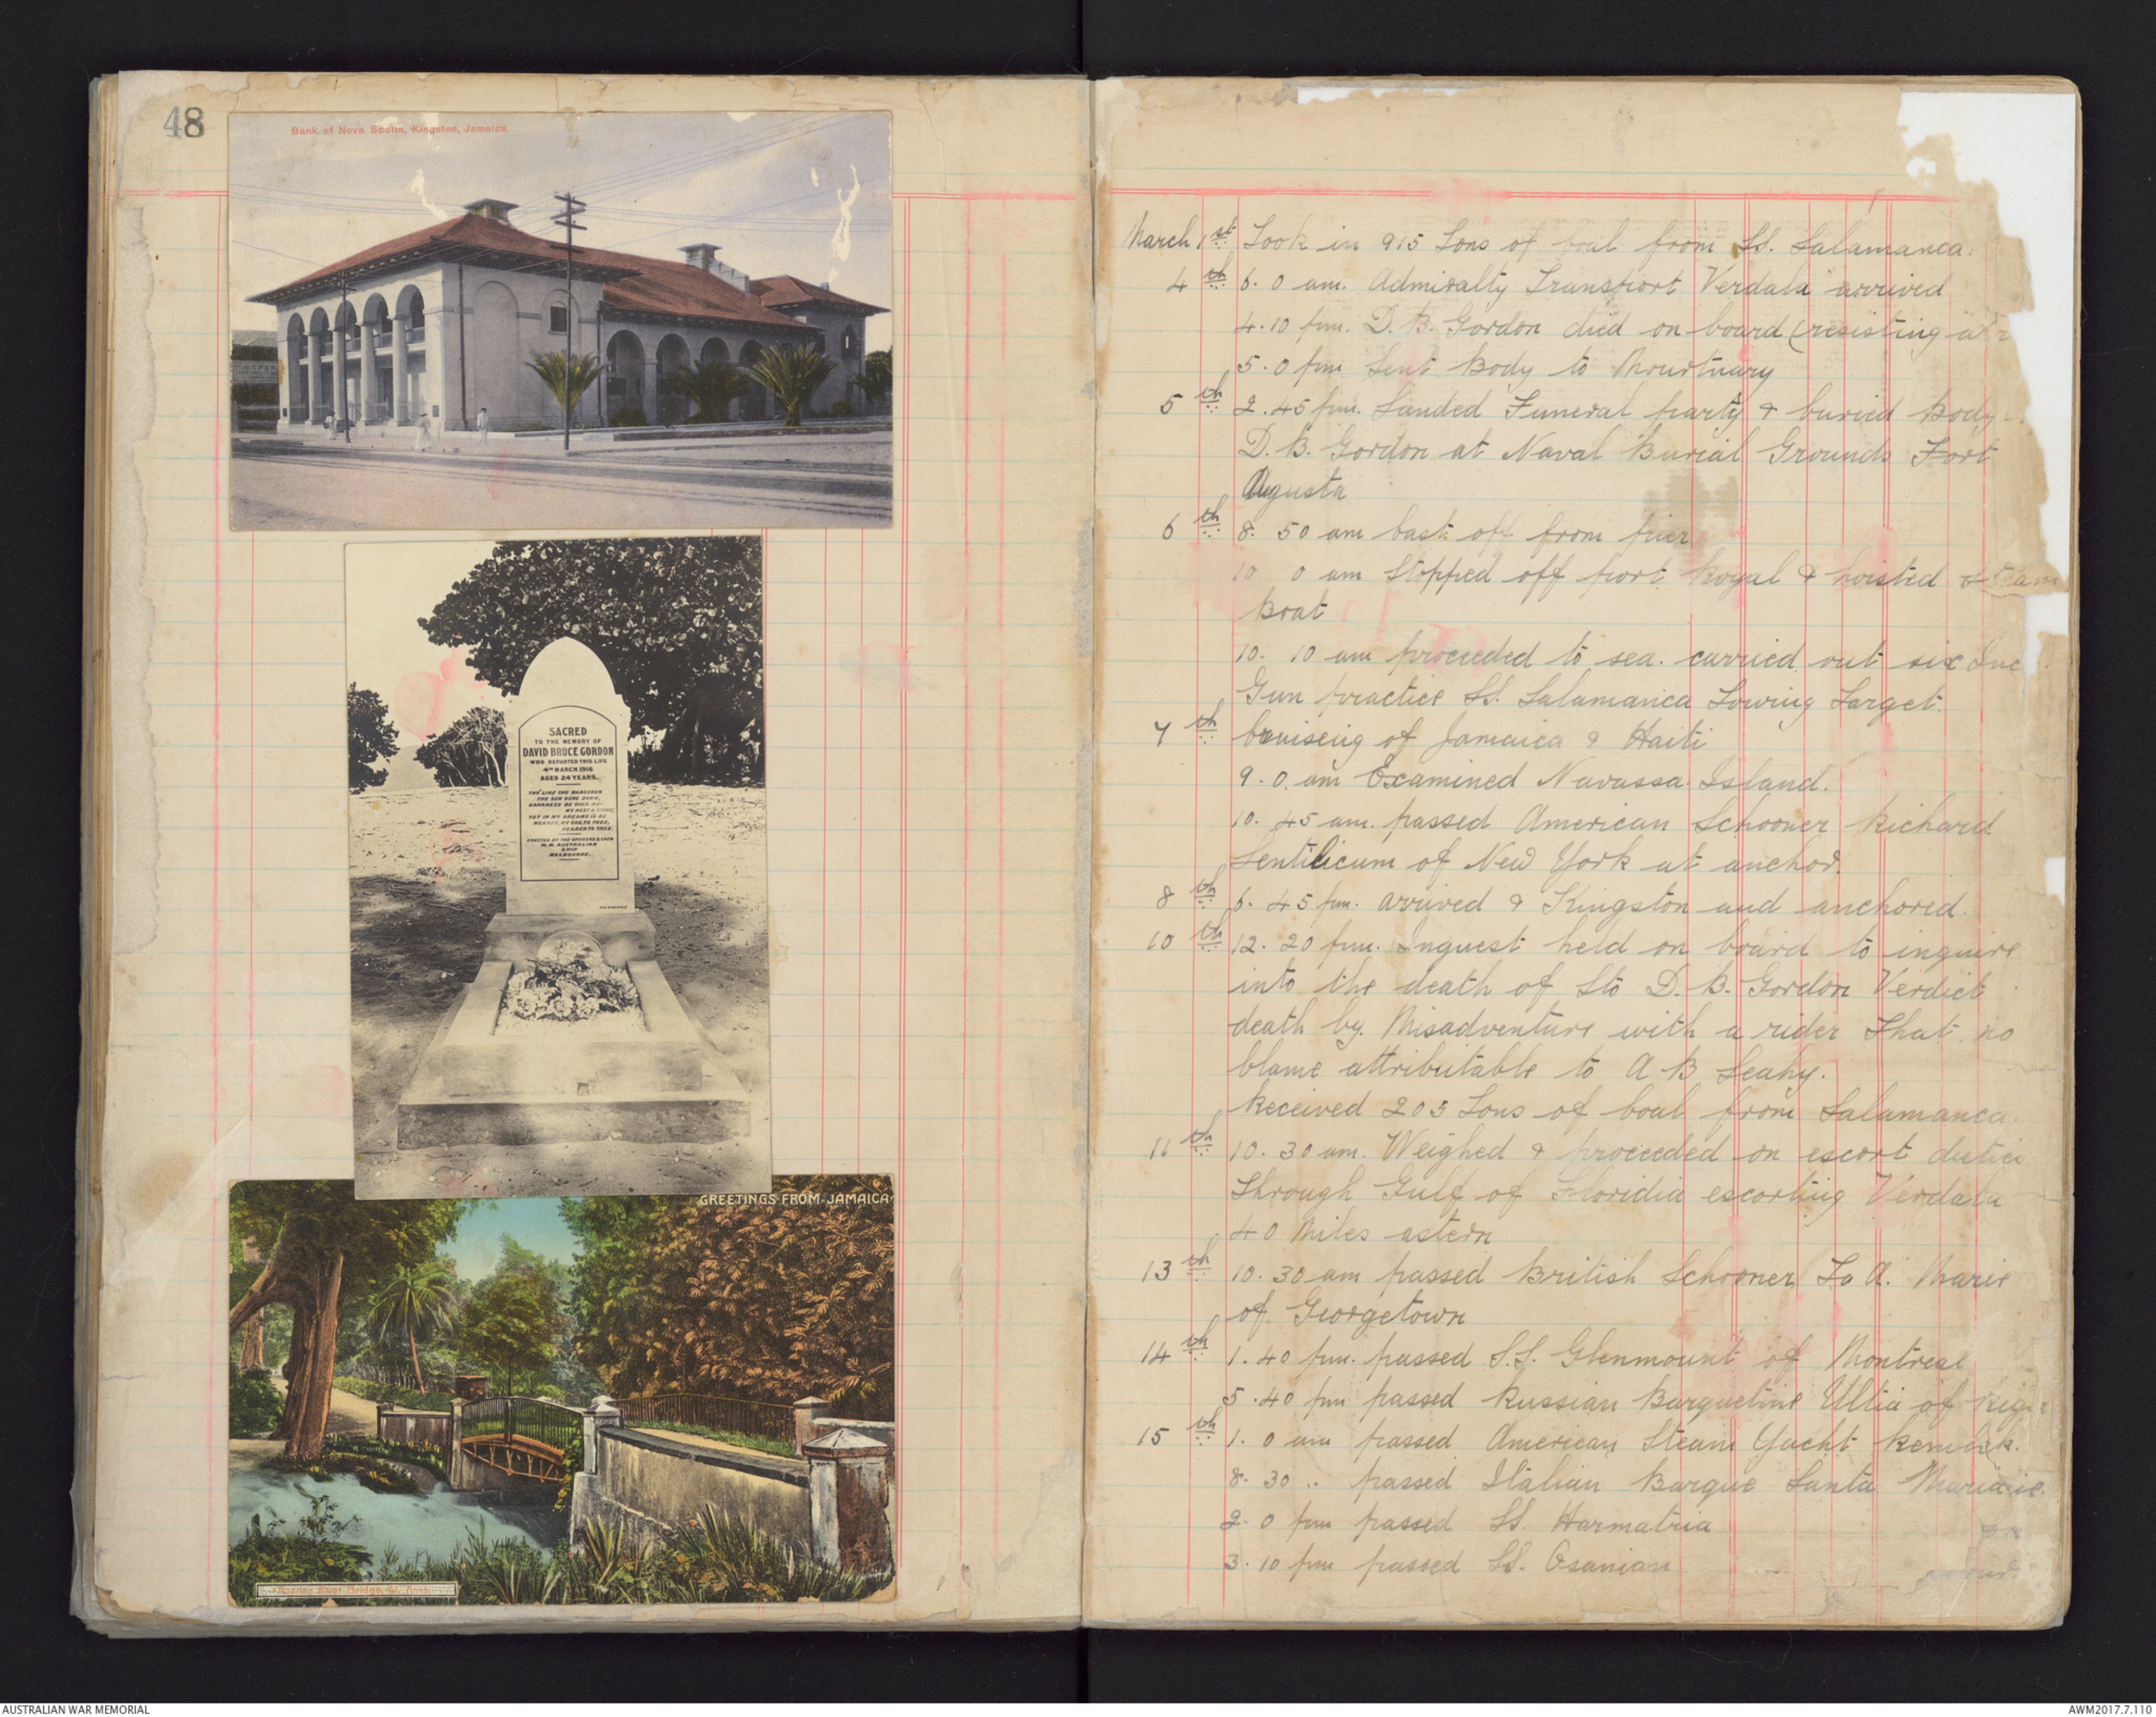 48
Bank of Nova Scotia, Kingston, Jamaica.
SACRED
TO THE MEMORY OF
DAVID BRUCE GORDON
WHO DEPARTED THIS LIFE
4TH MARCH 1916
AGED 24 YEARS.
THO' LIKE THE WANDERER
THE SUN GONE DOWN,
DARKNESS BE OVER ME,
MY REST A STONE;
YET IN MY DREAMS I'D BE
NEARER, MY GOD, TO THEE,
NEARER TO THEE.
ERECTED BY THE OFFICERS & CREW
H.M. AUSTRALIAN
SHIP
MELBOURNE.
GREETINGS FROM JAMAICA
Roaring River Bridge, St. Anns.
March 1st Took in 915 Tons of Coal from SS. Salamanca.
4th 6. 0 am. Admiralty Transport Verdala arrived
4. 10 pm. D. B. Gordon died on board (resisting
5. 0 pm Sent Body to Mourtuary
5th 2. 45 pm. Landed Funeral party & buried Body
D. B. Gordon at Naval Burial Grounds Fort
Augusta
6th 8. 50 am Cast off from pier
10 0 am Stopped off port Royal & hoisted steam
Boat
10. 10 am proceeded to sea. carried out six Inc
Gun practice SS. Salamanca Towing Target.
7th Cruiseing of Jamaica & Haiti
9. 0. am Examined Navassa Island.
10. 45 am. passed American Schooner Richard
Sentilicum of New York at anchor.
8th 6. 45 pm. arrived & Kingston and anchored.
10th 12. 20 pm. Inquest held on board to inquire
into the death of Sto D. B. Gordon Verdict
death by Misadventure with a rider That no
blame attributable to A B Leahy.
Received 203 Tons of Coal from Salamanca.
11th 10. 30 am. Weighed & proceeded on escort dutie
Through Gulf of Floridia escorting Verdala
40 Miles astern
13th 10. 30 am passed British Schooner La A. Marie
of Georgetown
14th 1. 40 pm. passed S.S. Glenmount of Montreal
5. 40 pm passed Russian Barquetine Ultia of Riga
15th 1. 0 am passed American Steam Yacht
8. 30 .. passed Italian Barque Santa
2. 0 pm passed SS. Harmatria
3. 10 pm passed SS. Osanian
AUSTRALIAN WAR MEMORIAL
AWM2017.7.110